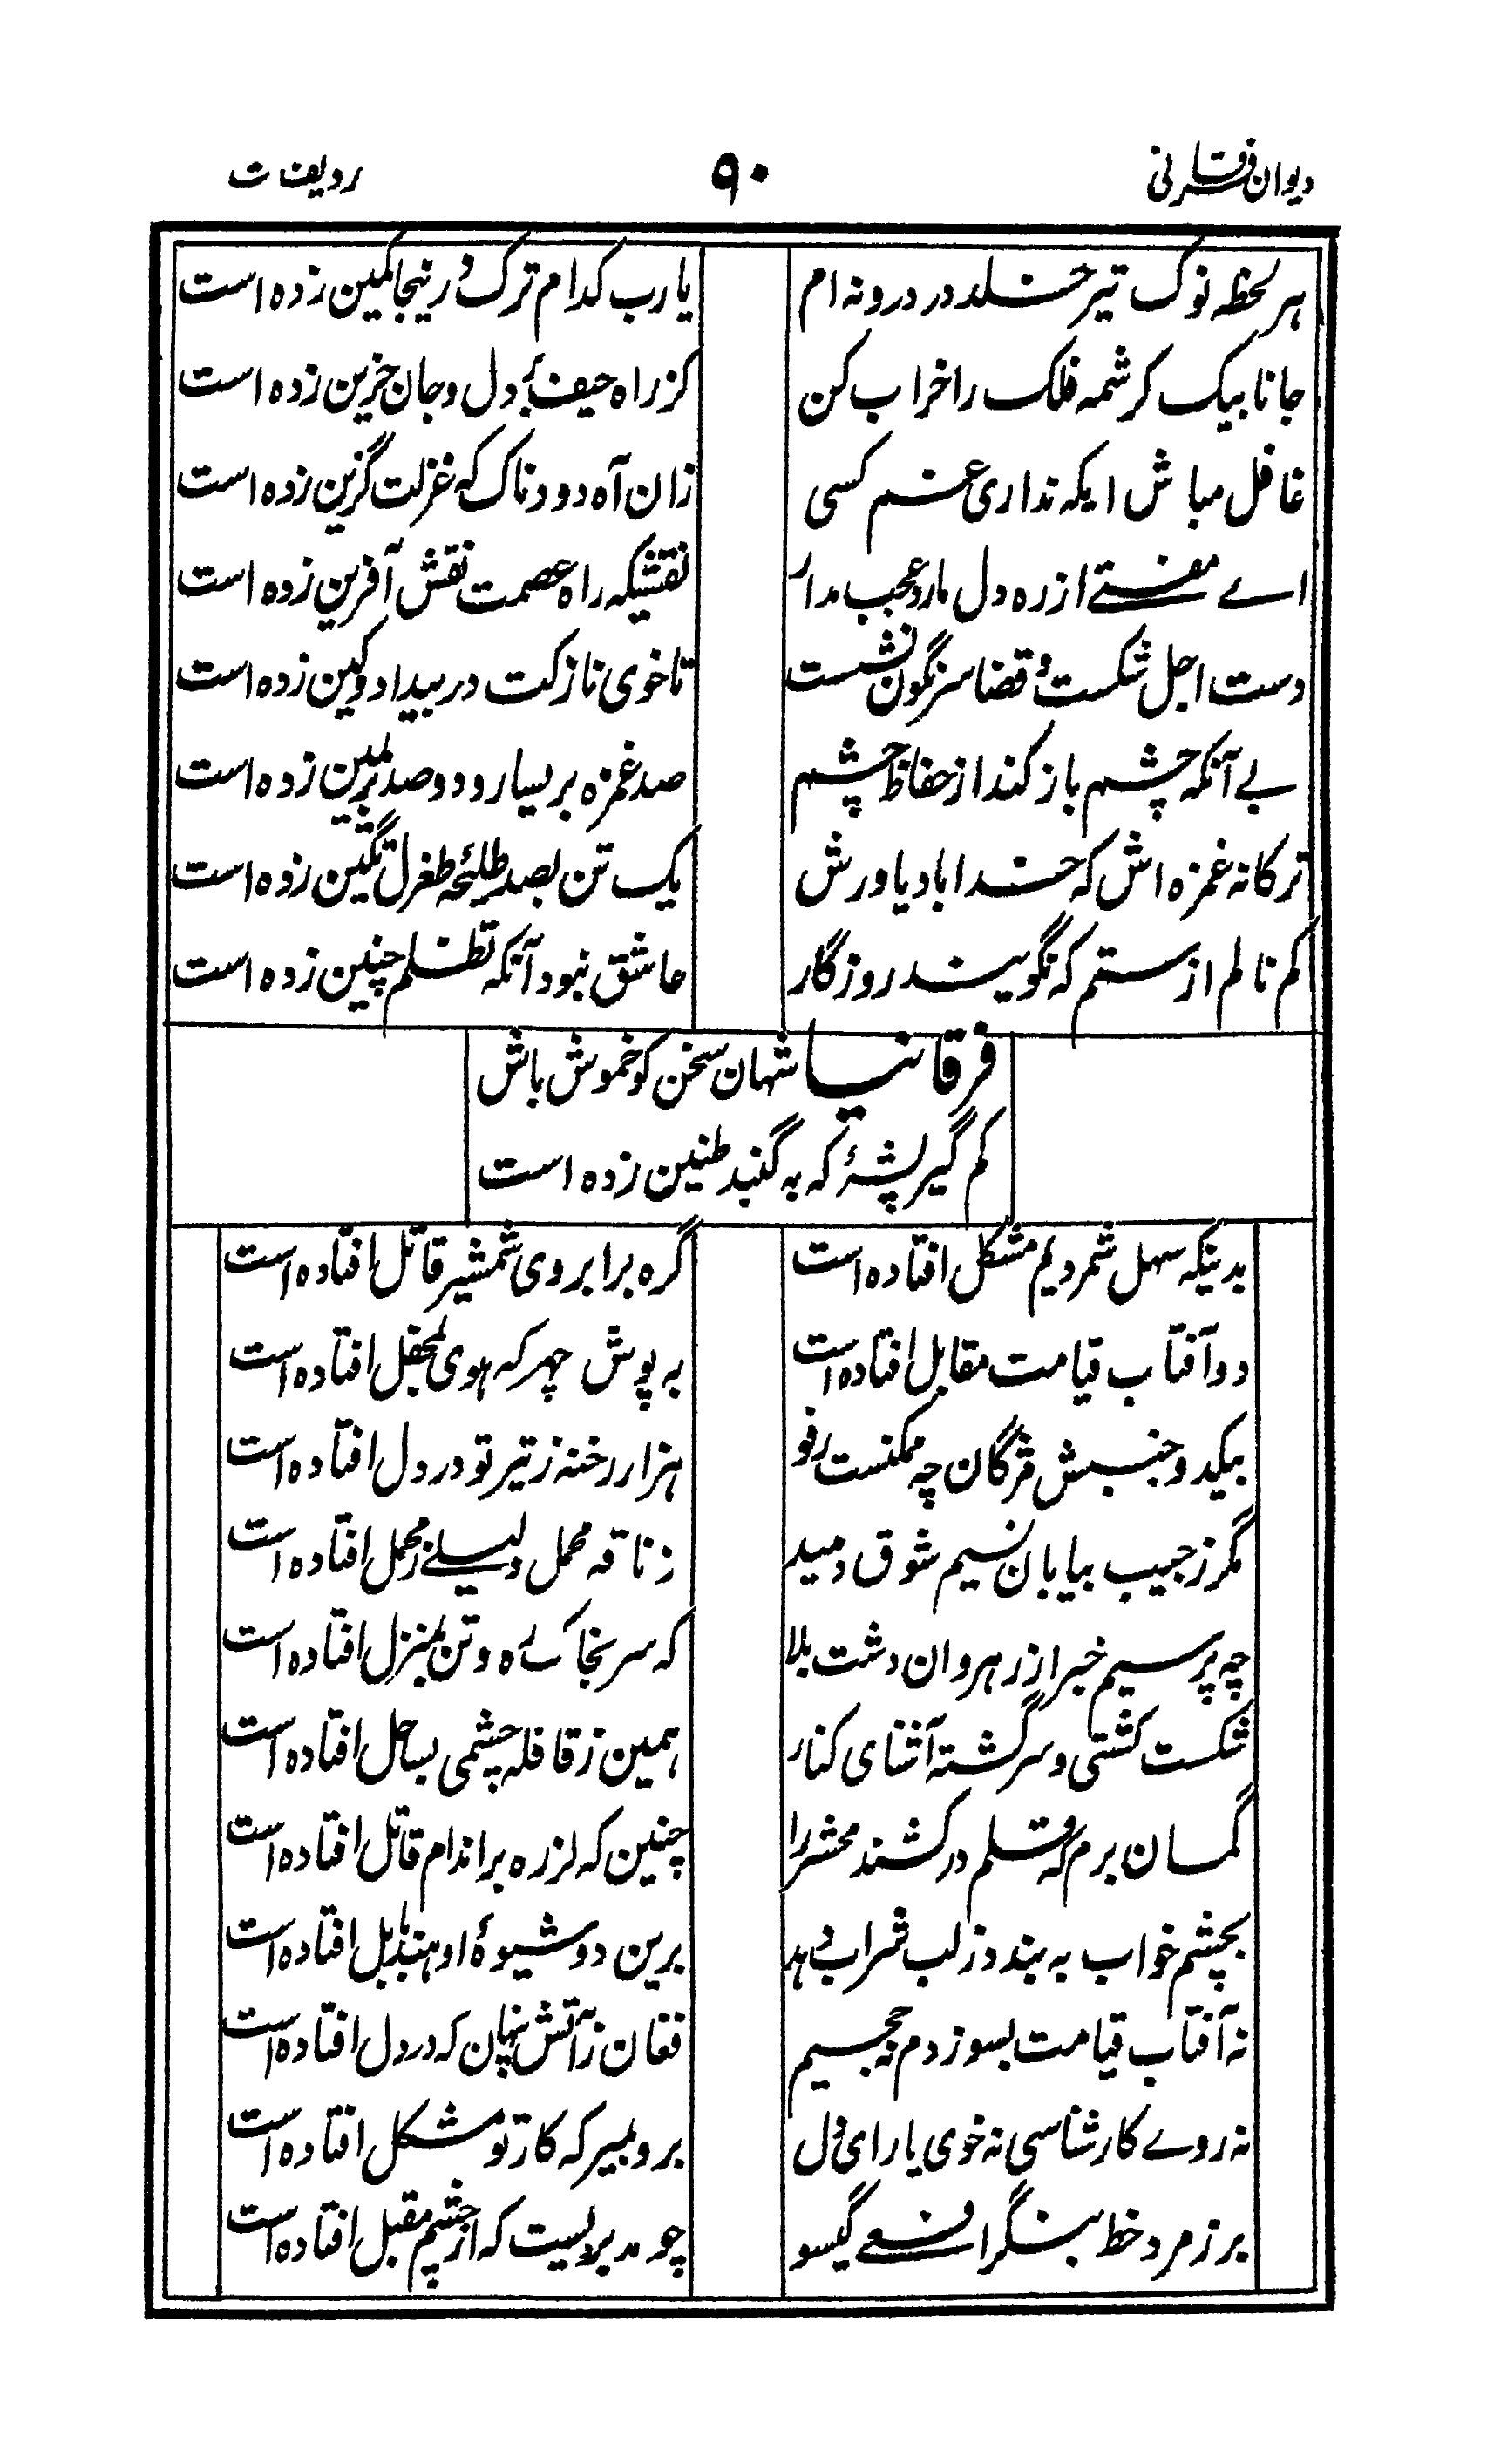 دیوان فرقانی ۹۰ ردیف ت
هر لحظه نوک تیر خلد در درونه ام
یارب کدام ترک درینجا کمین زده است
جانا بیک کرشمه فلک را خراب کن
کز راه حیف بدل و جان حزین زده است
غافل مباش ایکه نداری غم کسی
زان آه دودناک که عزلت گزین زده است
اے مفتے از ره دل ما رو عجب مدار
نقشیکه راه عصمت نقش آفرین زده است
دست اجل شکست و قضا سرنگون نشست
تا خوی نازکت در بیداد و کین زده است
بے آنکه چشم باز کند از حفاظ چشم
صد غمزه بر یسار و دو صد بر یمین زده است
ترکانه غمزه اش که خدا باد یاورش
یک تن بصد طلیحهٔ طغرل تگین زده است
کم نالم از ستم که نگویند روزگار
عاشق نبود آنکه تظلم چنین زده است
فرقانیا شهان سخن کو خموش باش
کم گیر پشهٔ که به گنبد طنین زده است
بدینکه سهل شمردیم مشکل افتاده است
گره بر ابروی شمشیر قاتل افتاده است
دو آفتاب قیامت مقابل افتاده است
به پوش چهر که هوی بمحفل افتاده است
بیکدو جنبش مژگان چه ممکنست رفو
هزار رخنه ز تیر تو در دل افتاده است
مگر ز جیب بیابان نسیم شوق دمید
ز ناقه محمل و لیلے ز محمل افتاده است
چه پرسیم خبر از رهروان دشت بلا
که سر بخاک ره و تن بمنزل افتاده است
شکست کشتی و سرگشته آشنای کنار
همین ز قافله چشمی بساحل افتاده است
گمان برم که قلم در کشند محشر را
چنین که لرزه بر اندام قاتل افتاده است
بچشم خواب به بندد ز لب شراب دهد
برین دو شیوهٔ او هند بابل افتاده است
نه آفتاب قیامت بسوزدم نه جحیم
فغان ز آتش پنهان که در دل افتاده است
نه روے کار شناسی نه خوی یار ای دل
برو بمیر که کار تو مشکل افتاده است
بر زمرد خط بنگر افعے گیسو
چو مدبریست که از چشم مقبل افتاده است